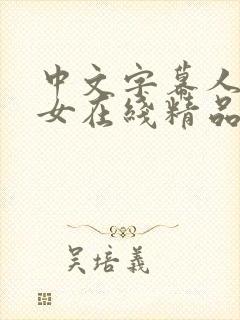 中文字幕人
女在綫精品
吴培義